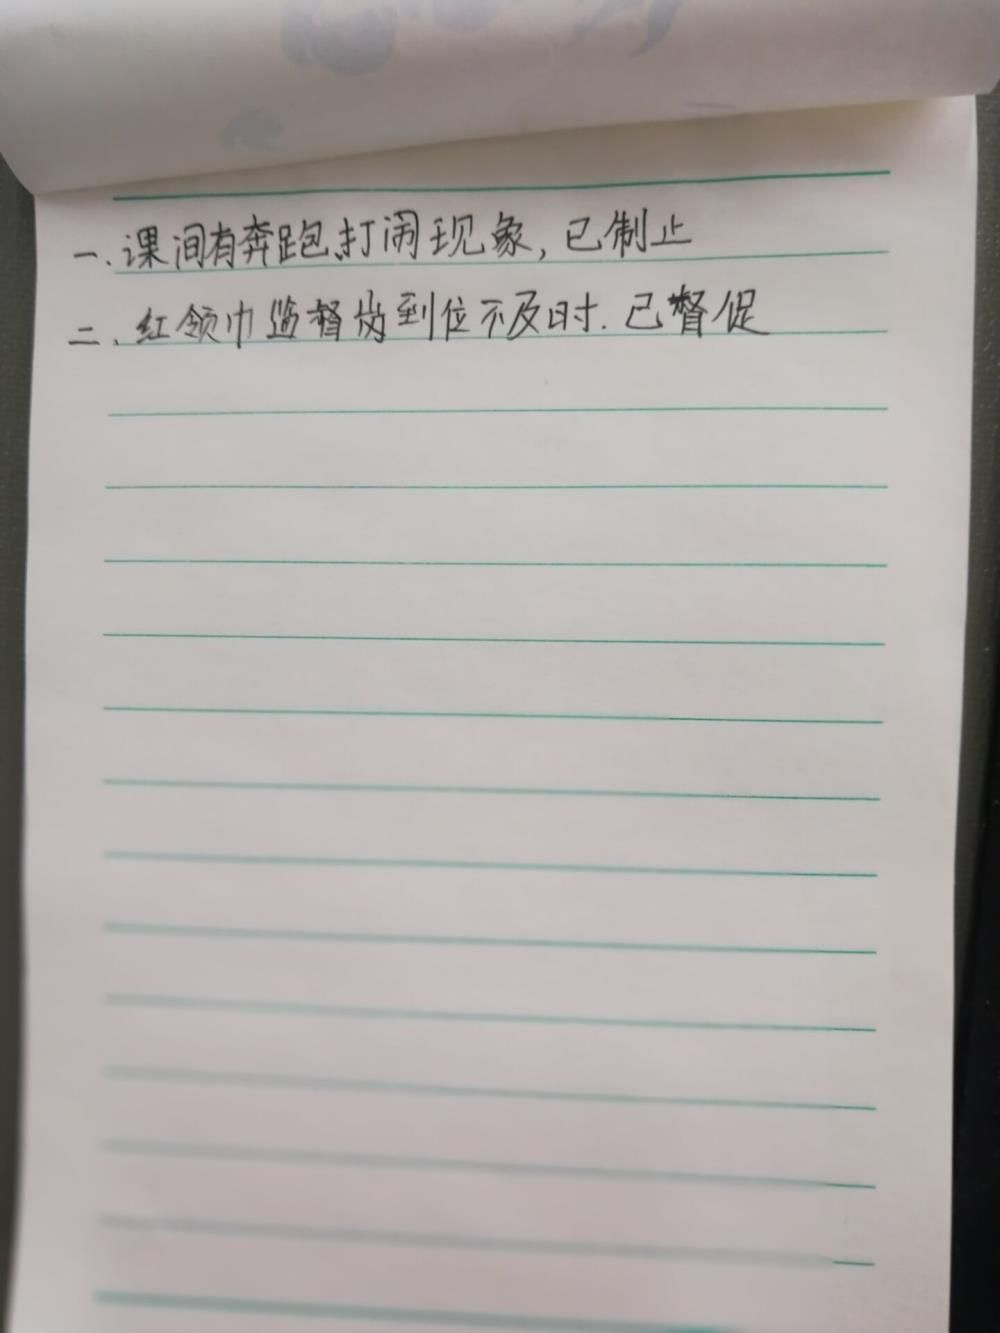 一、课间有奔跑、打闹现象，已制止
二、红领巾监督岗到位不及时．已督促